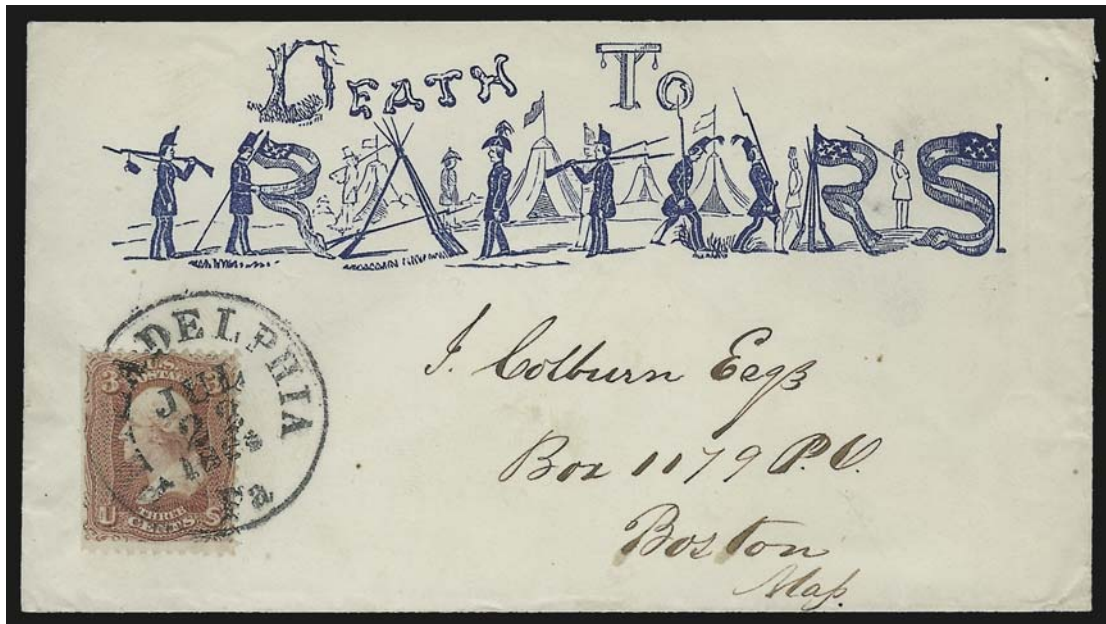 DEATH TO
TRAITORS
ADELPHIA
JUL
Pa
3 3
U.S.
POSTA
THREE
CENTS
U S
J. Colburn Esqr
Box 1179 P.O.
Boston
Mass.